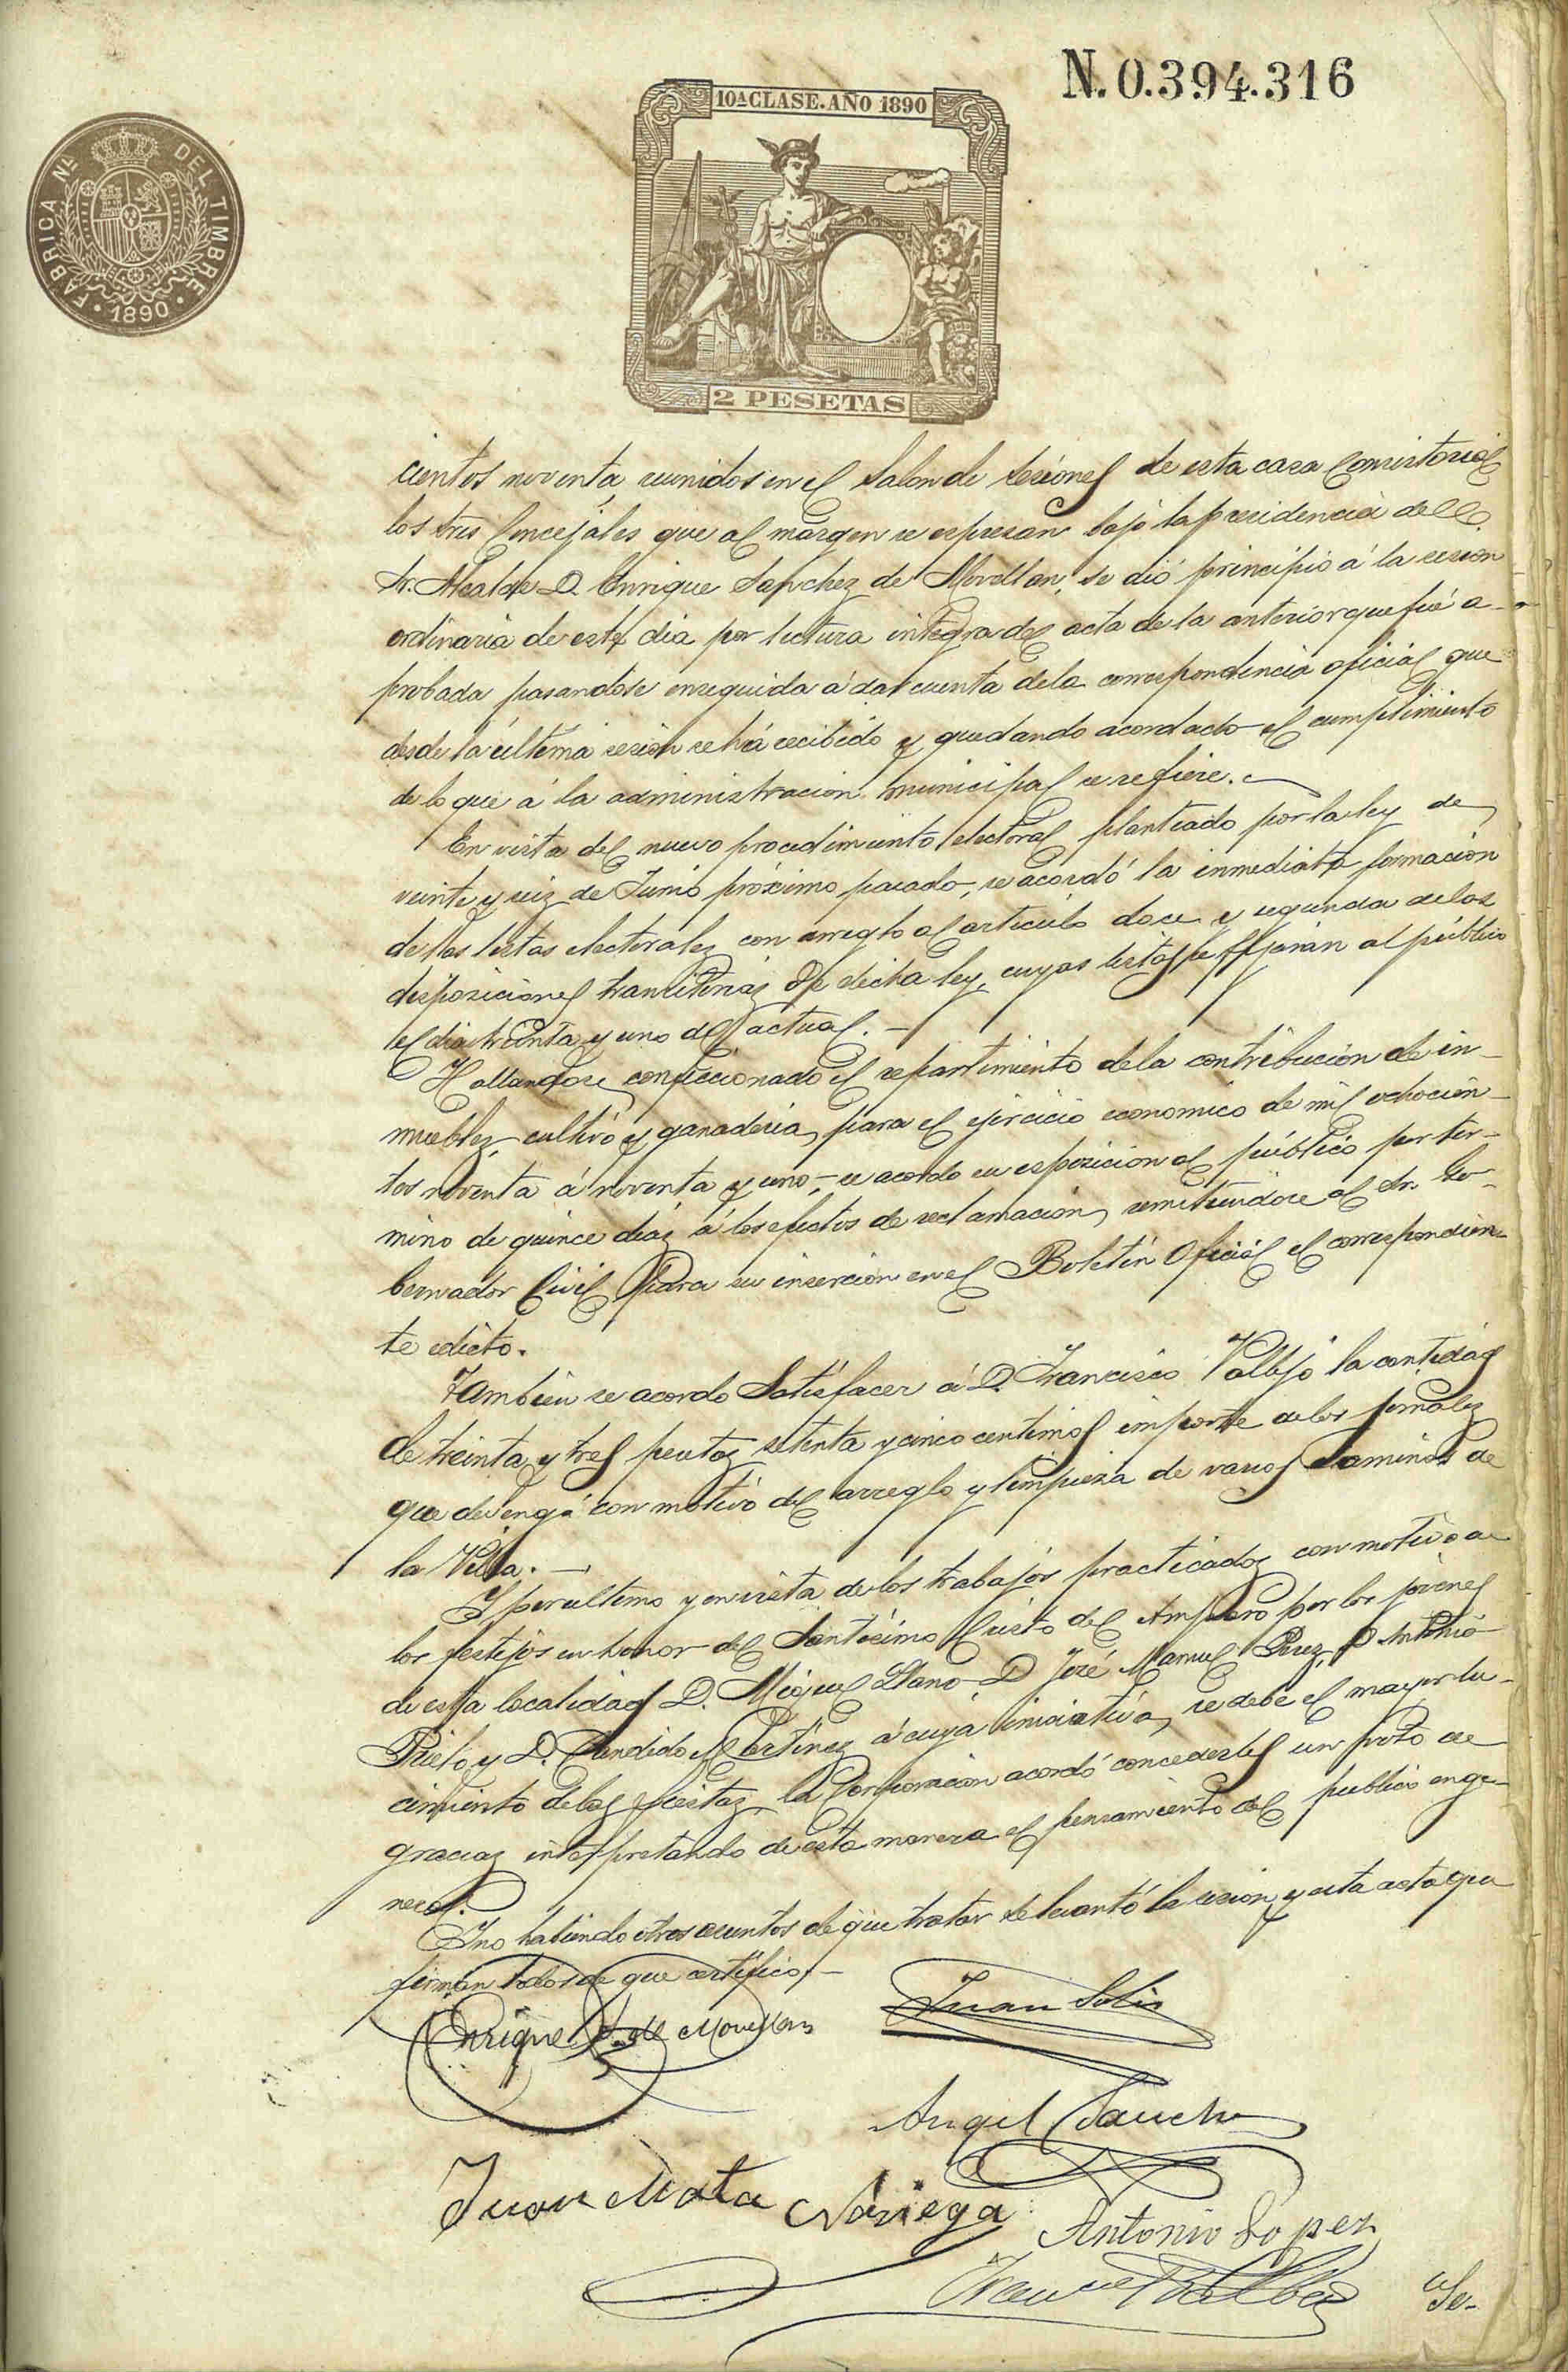 N. 0.394.316
10ª CLASE. AÑO 1890
FABRICA NL DEL TIMBRE
1890
2 PESETAS
cientos noventa, reunidos en el Salon de Sesiones de esta casa Consistorial
los tres Concejales que al margen se espresan bajo la presidencia del
Sr. Alcalde D. Enrique Sanchez de Movellan, se dió principio á la sesion
ordinaria de este dia por lectura integra del acta de la anterior que fué a-
probada pasandose enseguida á dar cuenta de la correspondencia oficial que
desde la última sesión se há recibido y quedando acordado el cumplimiento
de lo que á la administracion municipal se refiere.
En vista del nuevo procedimiento electoral planteado por la ley de
veinte y seis de Junio próximo pasado, se acordó la inmediata formacion
de las listas electorales con arreglo al artículo doce y segunda de las
disposiciones transitorias de dicha ley, cuyas listas se fijarán al público
el dia treinta y uno del actual.
Hallandose confeccionado el repartimiento de la contribucion de in-
muebles, cultivo y ganaderia, para el ejercicio economico de mil ochocien-
tos noventa á noventa y uno, se acordo su esposicion al público por ter-
mino de quince dias á los efectos de reclamacion, remitiendose al Sr. Go-
bernador Civil para su insercion en el Boletin Oficial el correspondien-
te edicto.
Tambien se acordo Satisfacer á D. Francisco Vallejo la cantidad
de treinta y tres pesetas setenta y cinco centimos importe de los jornales
que devengó con motivo del arreglo y limpieza de varios caminos de
la Villa.
Y por ultimo y en vista de los trabajos practicados con motivo de
los festejos en honor del Santísimo Cristo del Amparo por los jóvenes
de esta localidad D. Miguel Llano D. José Manuel Perez, D. Antonio
Prieto y D. Candido Martinez á cuya iniciativa, se debe el mayor lu-
cimiento de las fiestas, la Corporacion acordó concederles un voto de
gracias interpretando de esta manera el pensamiento del publico en ge-
neral.
Y no habiendo otros asuntos de que tratar se levantó la sesion y esta acta que
firman todos de que certifico.
Enrique S. de Movellan
Juan Solis
Angel Sanchez
Juan Mata Noriega
Antonio Lopez
Se-